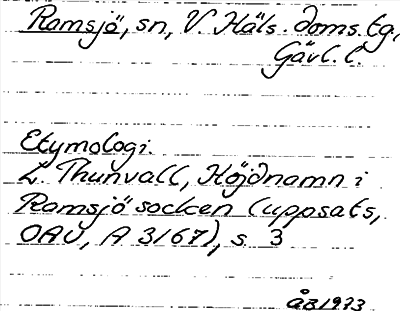 Ramsjö, sn, V. Häls. doms.tg,
Gävl. l.
Etymologi.
L. Thunvall, Höjdnamn i
Ramsjö socken (uppsats,
OAU, A 3167), s. 3
ÅB 1973